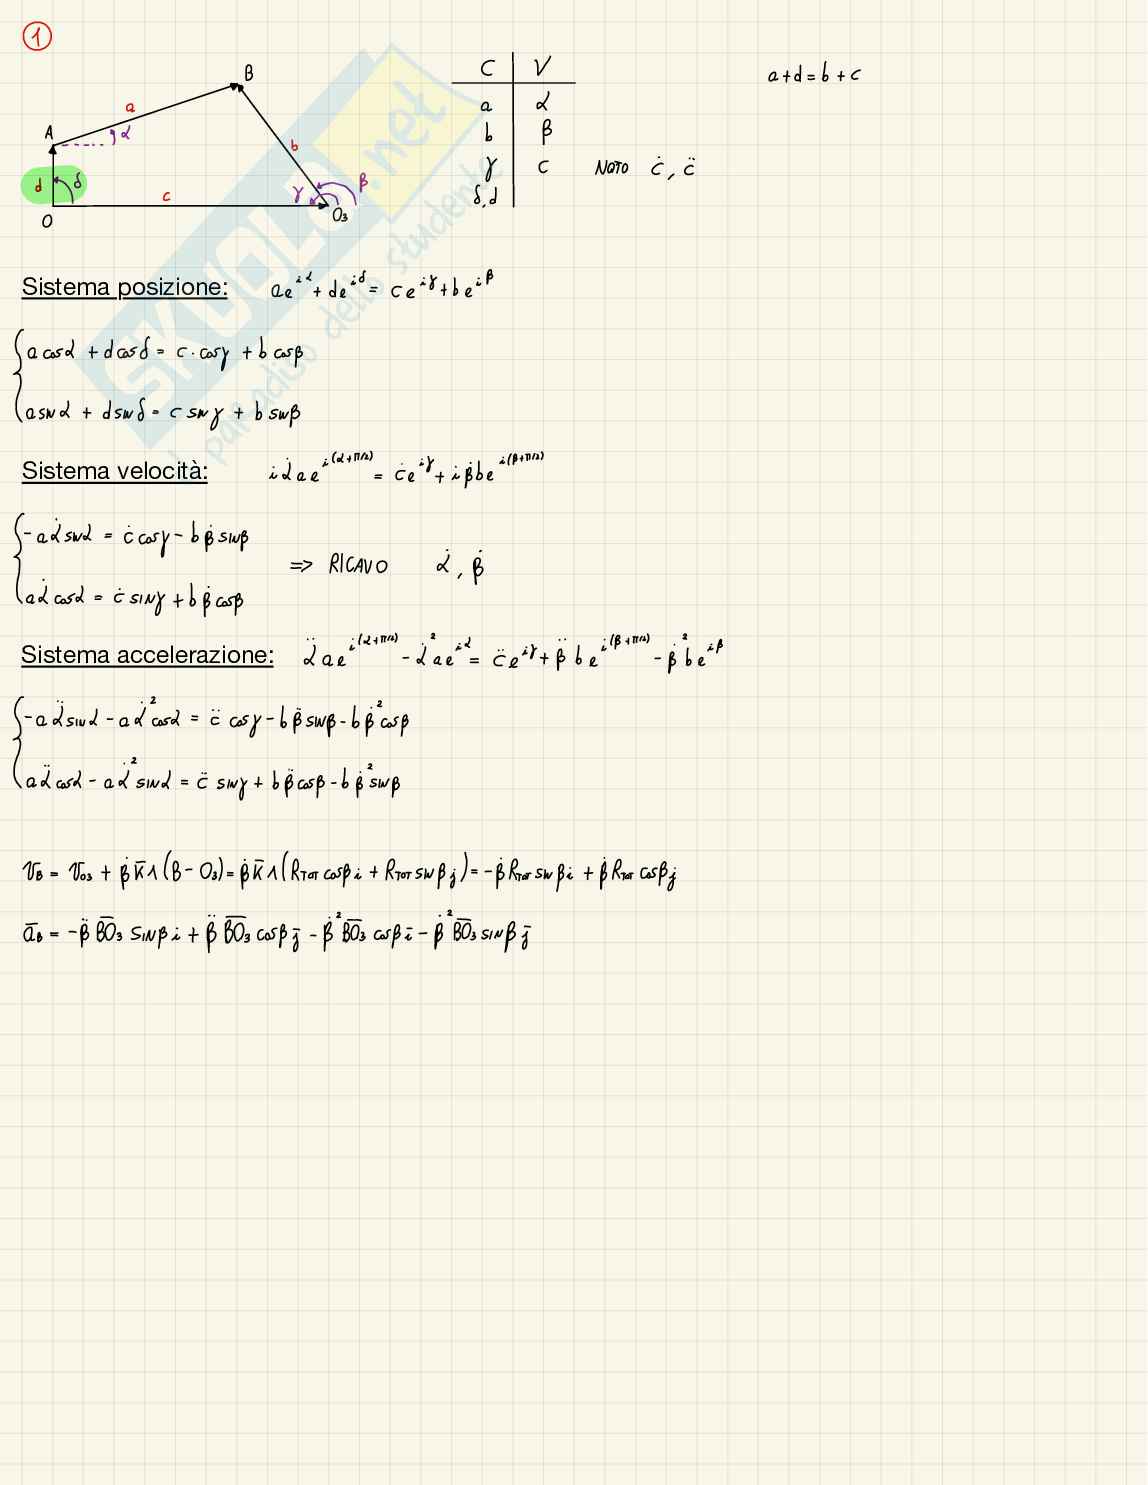 1
B
a
A
α
b
d
δ
c
γ
β
O
O₃
C V
a α
b β
γ c NOTO ċ, c̈
δ,d
a+d=b+c
SKUOLA.net
il paradiso dello studente
Sistema posizione: ae^{iα} + de^{iδ} = ce^{iγ} + be^{iβ}
a cosα + d cosδ = c · cosγ + b cosβ
a sinα + d sinδ = c sinγ + b sinβ
Sistema velocità: iα̇ae^{i(α+π/2)} = ċe^{iγ} + iβ̇be^{i(β+π/2)}
-aα̇ sinα = ċ cosγ - bβ̇ sinβ
=> RICAVO α̇, β̇
aα̇ cosα = ċ sinγ + bβ̇ cosβ
Sistema accelerazione: α̈ae^{i(α+π/2)} - α̇²ae^{iα} = c̈e^{iγ} + β̈be^{i(β+π/2)} - β̇²be^{iβ}
-aα̈ sinα - aα̇² cosα = c̈ cosγ - bβ̈ sinβ - bβ̇² cosβ
aα̈ cosα - aα̇² sinα = c̈ sinγ + bβ̈ cosβ - bβ̇² sinβ
v_B = v_{O3} + β̇ k̄ ∧ (B - O₃) = β̇ k̄ ∧ (R_{TOT} cosβ i + R_{TOT} sinβ j) = -β̇ R_{TOT} sinβ i + β̇ R_{TOT} cosβ j
ā_B = -β̈ B̅O̅₃ sinβ i + β̈ B̅O̅₃ cosβ j̄ - β̇² B̅O̅₃ cosβ ī - β̇² B̅O̅₃ sinβ j̄